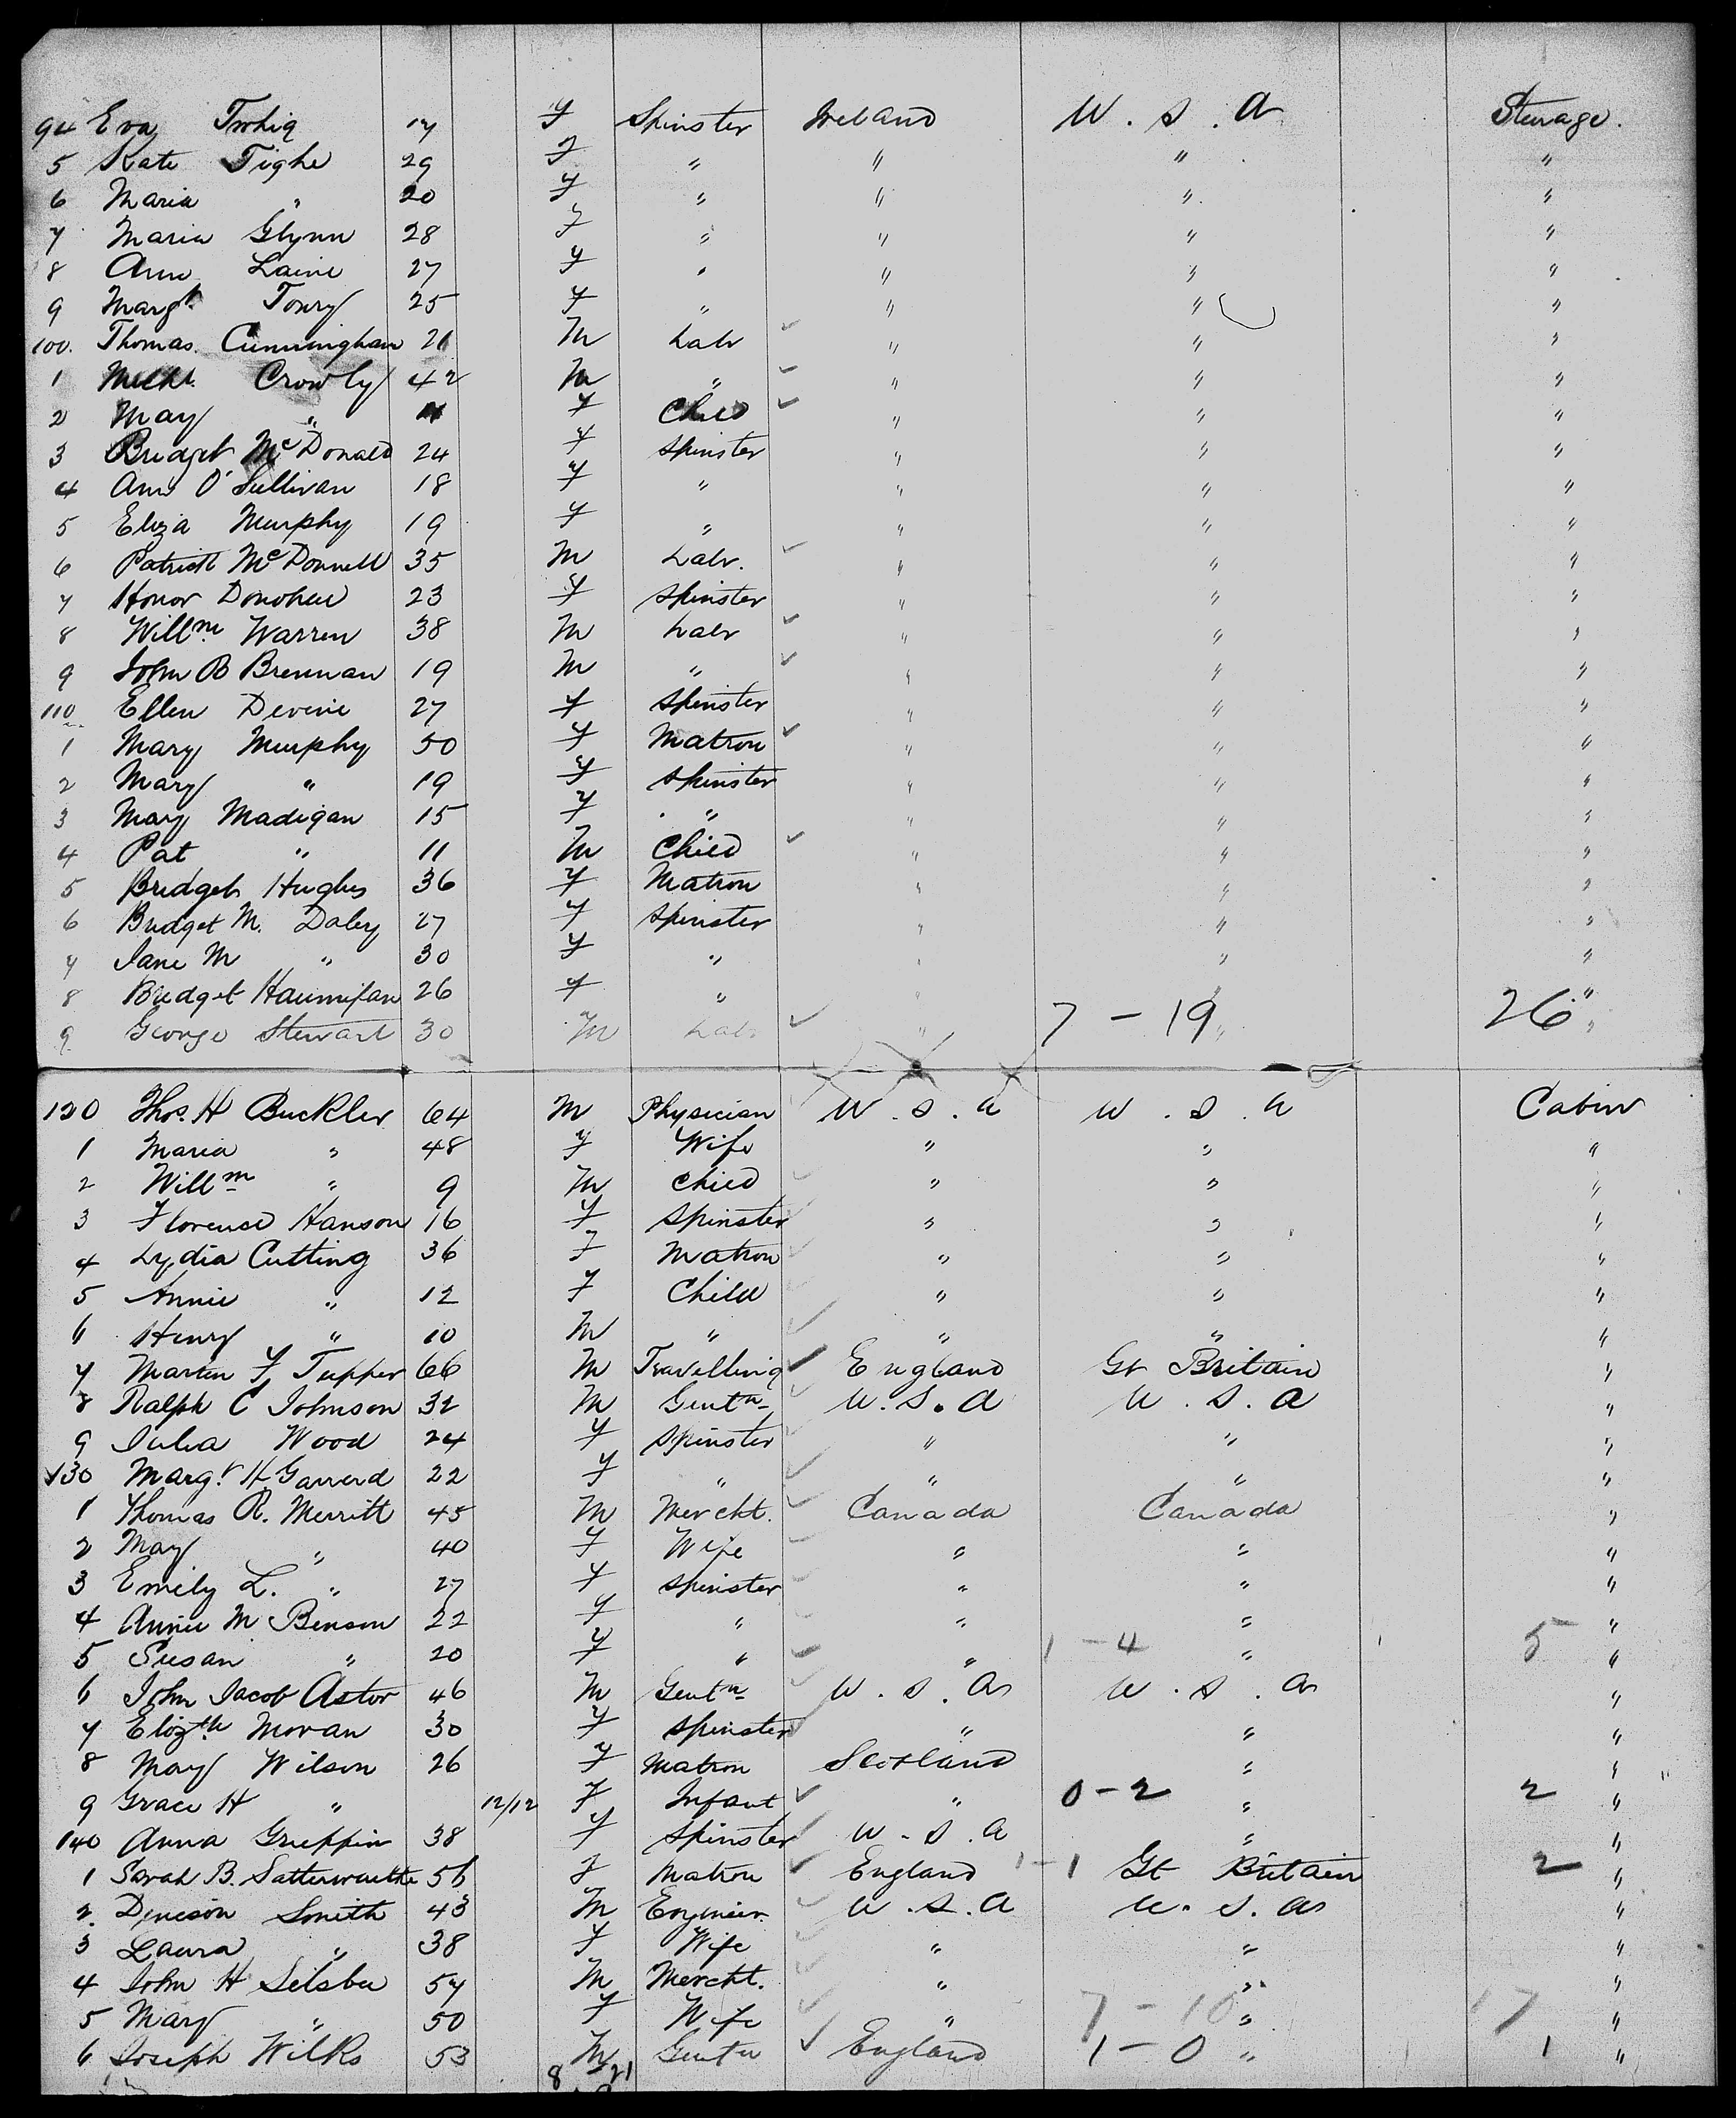 94 Eva Twhig 17 F Spinster Ireland U. S. A Steerage.
5 Kate Tighe 29 F " " " "
6 Maria " 20 F " " " "
7 Maria Glynn 28 F " " " "
8 Ann Laine 27 F " " " "
9 Margt Toury 25 F " " " "
100. Thomas. Cunningham 21 M Labr " " "
1 Michl. Crowly 42 M " " " "
2 May " F Child " " "
3 Bridget McDonald 24 F Spinster " " "
4 Ann O'Sullivan 18 F " " " "
5 Eliza Murphy 19 F " " " "
6 Patrick McDonnell 35 M Labr. " " "
7 Honor Donohue 23 F Spinster " " "
8 Willm Warren 38 M Labr " " "
9 John B Brennan 19 M " " " "
110 Ellen Devine 27 F Spinster " " "
1 Mary Murphy 50 F Matron " " "
2 Mary " 19 F Spinster " " "
3 Mary Madigan 15 F " " " "
4 Pat " 11 M Child " " "
5 Bridget Hughes 36 F Matron " " "
6 Bridget M. Daley 27 F Spinster " " "
7 Jane M " 30 F " " " "
8 Bridget 26 F " " " "
9 George Stewart 30 M Labr " 7 - 19 " 26 "
120 Thos. H Buckler 64 M Physician U. S. A U. S. A Cabin
1 Maria " 48 F Wife " " "
2 Willm " 9 M Child " " "
3 Florence Hanson 16 F Spinster " " "
4 Lydia Cutting 36 F Matron " " "
5 Annie " 12 F Child " " "
6 Henry " 10 M " " " "
7 Martin F Tupper 66 M Travelling England Gt Britain "
8 Ralph C Johnson 32 M Gentn U. S. A U. S. A "
9 Julia Wood 24 F Spinster " " "
130 Margt H Garrerd 22 F " " " "
1 Thomas R. Merritt 45 M Mercht. Canada Canada "
2 May " 40 F Wife " " "
3 Emily L. " 27 F Spinster " " "
4 Annie M Benson 22 F " " " "
5 Susan " 20 F " " 1 - 4 " 5 "
6 John Jacob Astor 46 M Gentn U. S. A U. S. A "
7 Elizth Moran 30 F Spinster " " "
8 May Wilson 26 F Matron Scotland " "
9 Grace H " 12/12 F Infant " 0 - 2 " 2 "
140 Anna Grieppin 38 F Spinster U. S. A " "
1 Sarah B. Satterwaithe 56 F Matron England 1 - 1 Gt Britain 2 "
2. Denison Smith 43 M Engineer. U. S. A U. S. A "
3 Laura " 38 F Wife " " "
4 John H Selsbee 57 M Mercht. " " "
5 Mary " 50 F Wife " 7 - 10 " 17 "
6 Joseph Wilks 53 M Gentn England 1 - 0 " 1 "
8 21